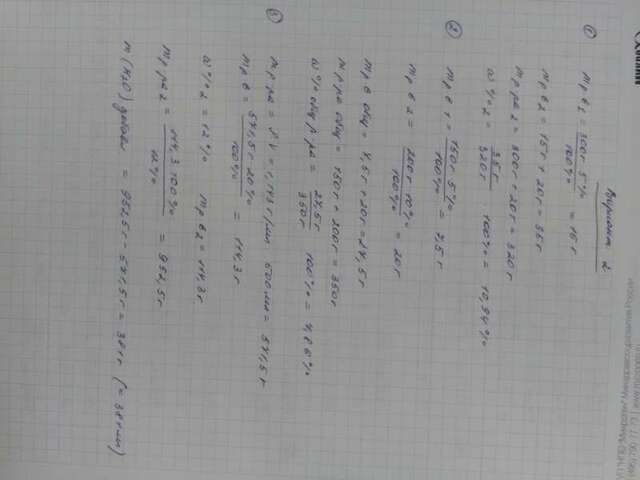 Вариант 2
①
m р в 1 = 300г · 5% / 100% = 15 г
m р в 2 = 15 г + 20 г = 35 г
m р ра 2 = 300 г + 20 г = 320 г
ω % 2 = 35 г / 320 г · 100% = 10,94%
②
m р в 1 = 150 г · 5% / 100% = 7,5 г
m р в 2 = 200 г · 10% / 100% = 20 г
m р в общ = 7,5 г + 20 г = 27,5 г
m р ра общ = 150 г + 200 г = 350 г
ω % общ р ра = 27,5 г / 350 г · 100% = 7,86%
③
m р ра = ρV = 1,143 г/мл · 500 мл = 571,5 г
m р в = 571,5 г · 20% / 100% = 114,3 г
ω % 2 = 12% m р в 2 = 114,3 г
m р ра 2 = 114,3 · 100% / 12% = 952,5 г
m (H2O) добавл = 952,5 г - 571,5 г = 381 г (= 381 мл)